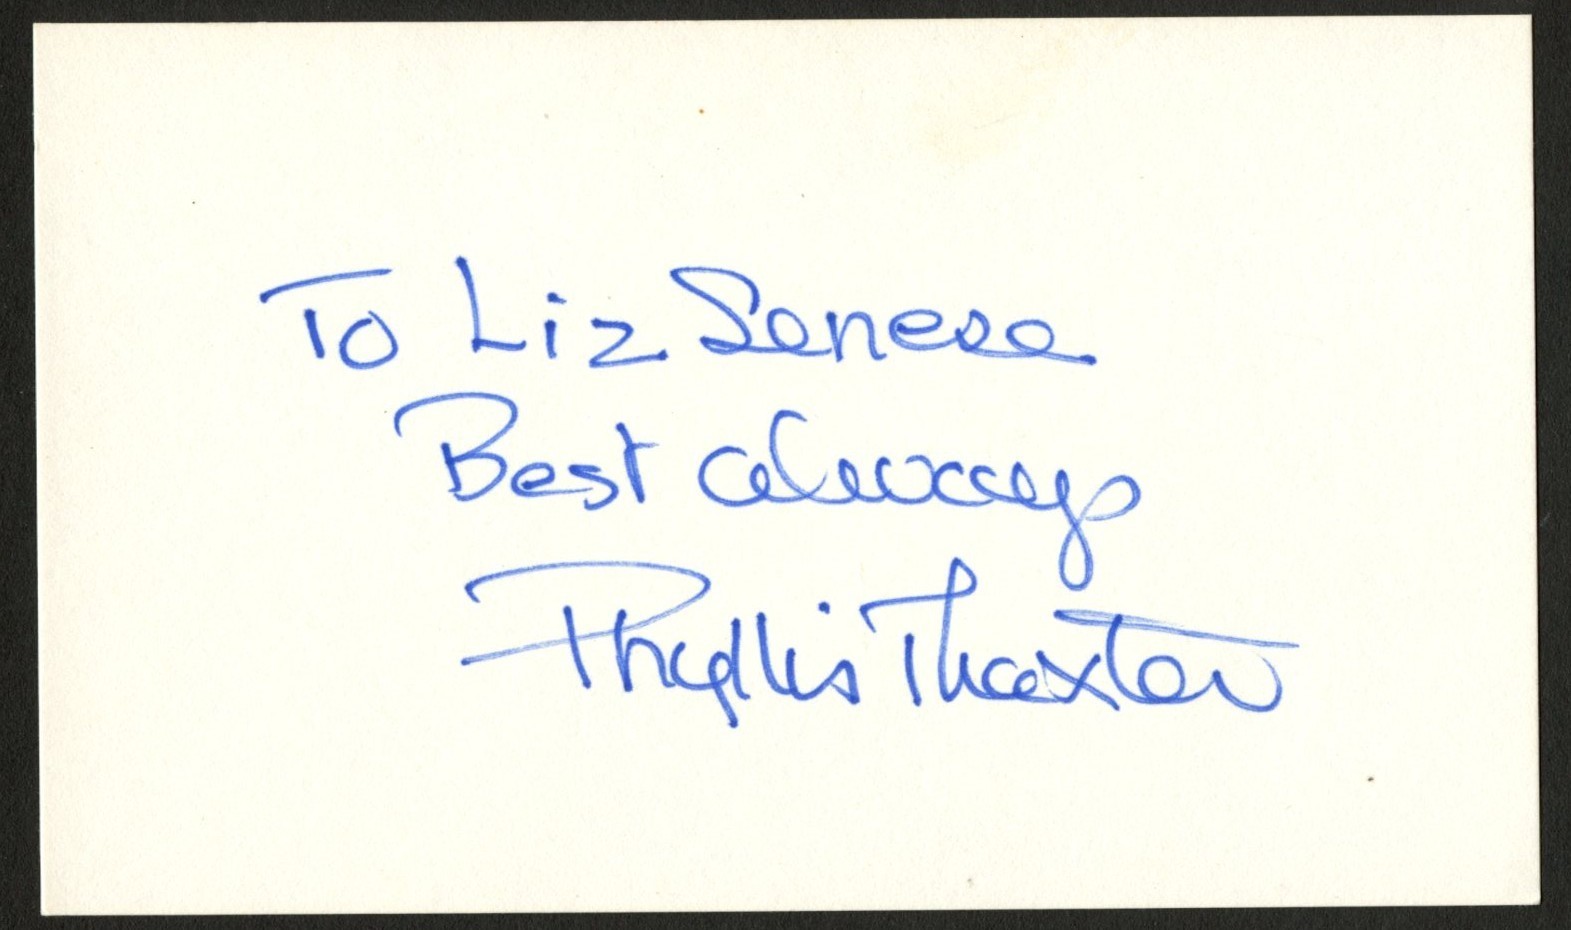 To Liz Senese
Best always
Phyllis Thaxter